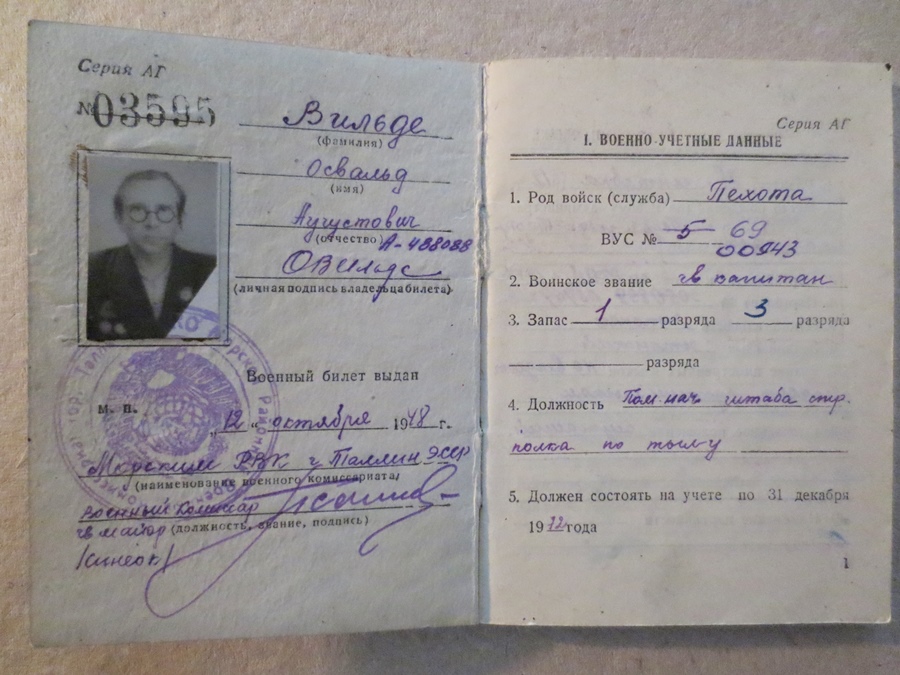 Серия АГ
№ 03595
Вильде
(фамилия)
Освальд
(имя)
Аугустович
(отчество) А-488088
ОВильде
(личная подпись владельца билета)
Военный билет выдан
М. П.
„12“ октября 1948 г.
Морским РВК г Таллин ЭССР
(наименование военного комиссариата)
военный комиссар
гв майор (должность, звание, подпись)
/Синеок/
Серия АГ
I. ВОЕННО-УЧЕТНЫЕ ДАННЫЕ
1. Род войск (служба) Пехота
ВУС № 5 69
00943
2. Воинское звание гв капитан
3. Запас 1 разряда 3 разряда
разряда
4. Должность Пом. нач. штаба стр.
полка по тылу
5. Должен состоять на учете по 31 декабря
1972 года
1